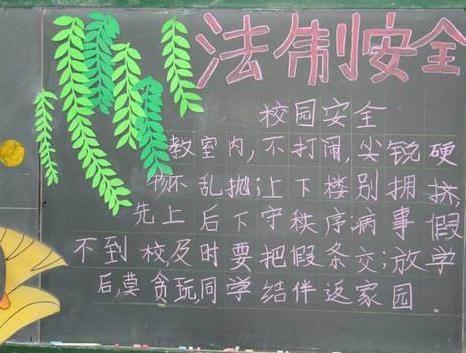 法制安全
校园安全
教室内,不打闹,尖锐硬
物不乱抛;上下楼别拥挤
先上后下守秩序;病事假
不到校及时要把假条交;放学
后,莫贪玩同学结伴返家园.